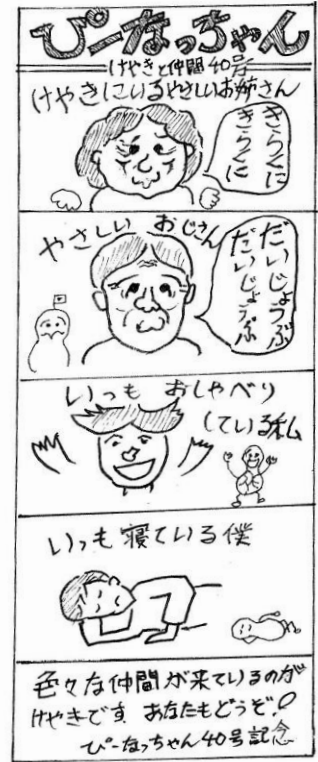 ぴーなっちゃん
けやきと仲間40号
けやきにいるやさしいお姉さん
きらくに
きらくに
やさしい おじさん
だいじょうぶ
だいじょうぶ
いつも おしゃべり
している私
いつも寝ている僕
色々な仲間が来ているのが
けやきです あなたもどうぞ!
ぴーなっちゃん40号記念